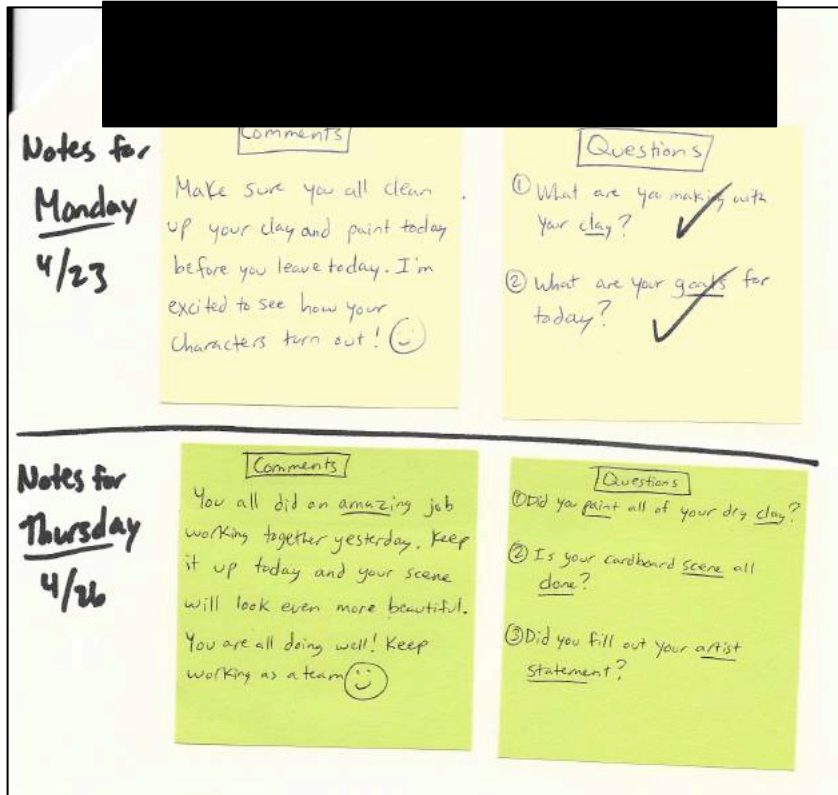 Notes for
Monday
4/23
Comments
Make sure you all clean
up your clay and paint today
before you leave today. I'm
excited to see how your
characters turn out!
Questions
① What are you making with
your clay?
② What are your goals for
today?
Notes for
Thursday
4/26
Comments
You all did an amazing job
working together yesterday. Keep
it up today and your scene
will look even more beautiful.
You are all doing well! Keep
working as a team
Questions
①Did you paint all of your dry clay?
② Is your cardboard scene all
done?
③Did you fill out your artist
statement?